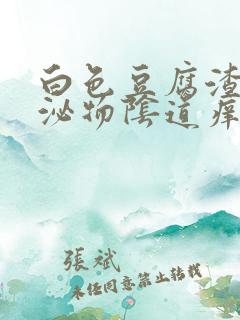 白色豆腐渣
泌物陰道痒
張斌
未经同意禁止转载